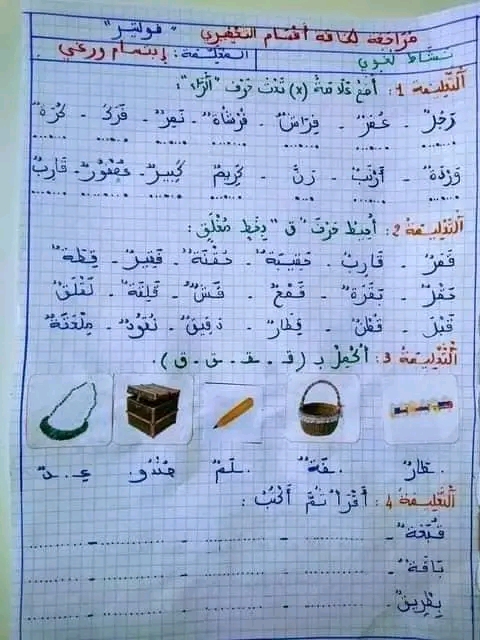 مراجعة لكافة أقسام التحضيري "فولتير"
نشاط لغوي المعلمة: إبتسام ورغي
التعليمة 1: أضع علامة (x) تحت حرف "الراء":
رَجُلٌ - عُمَرُ - فِرَاشٌ - فُرْشَاةٌ - نَمِرٌ - فَرَكَ - كُرَةٌ
وَرْدَةٌ - أَرْنَبٌ - رَنَّ - كَرِيمٌ - كَبِيرٌ - عُصْفُورٌ - قَارِبٌ
التعليمة 2: أحيط حرف "ق" بخط مغلق:
قَمَرٌ - قَارِبٌ - حَقِيبَةٌ - حُقْنَةٌ - فَقِيرٌ - قِطَّةٌ
بَقَرَةٌ - قَمْعٌ - لَقْلَقٌ
قَبْلَ - قُطْنٌ - قِطَارٌ - دَقِيقٌ - نُقُودٌ - مِلْعَقَةٌ
التعليمة 3: أكمل بـ (قـ - ـقـ - ـق - ق).
.ـطارٌ .ـفةٌ .ـلمٌ صُندو. عِـ.ـدٌ
التعليمة 4: أقرأ ثم أكتب:
قُبَّعَةٌ - ........ - ........ - ........
بَاقَةٌ - ........ - ........ - ........
بِطْرِيقٌ - ........ - ........ - ........